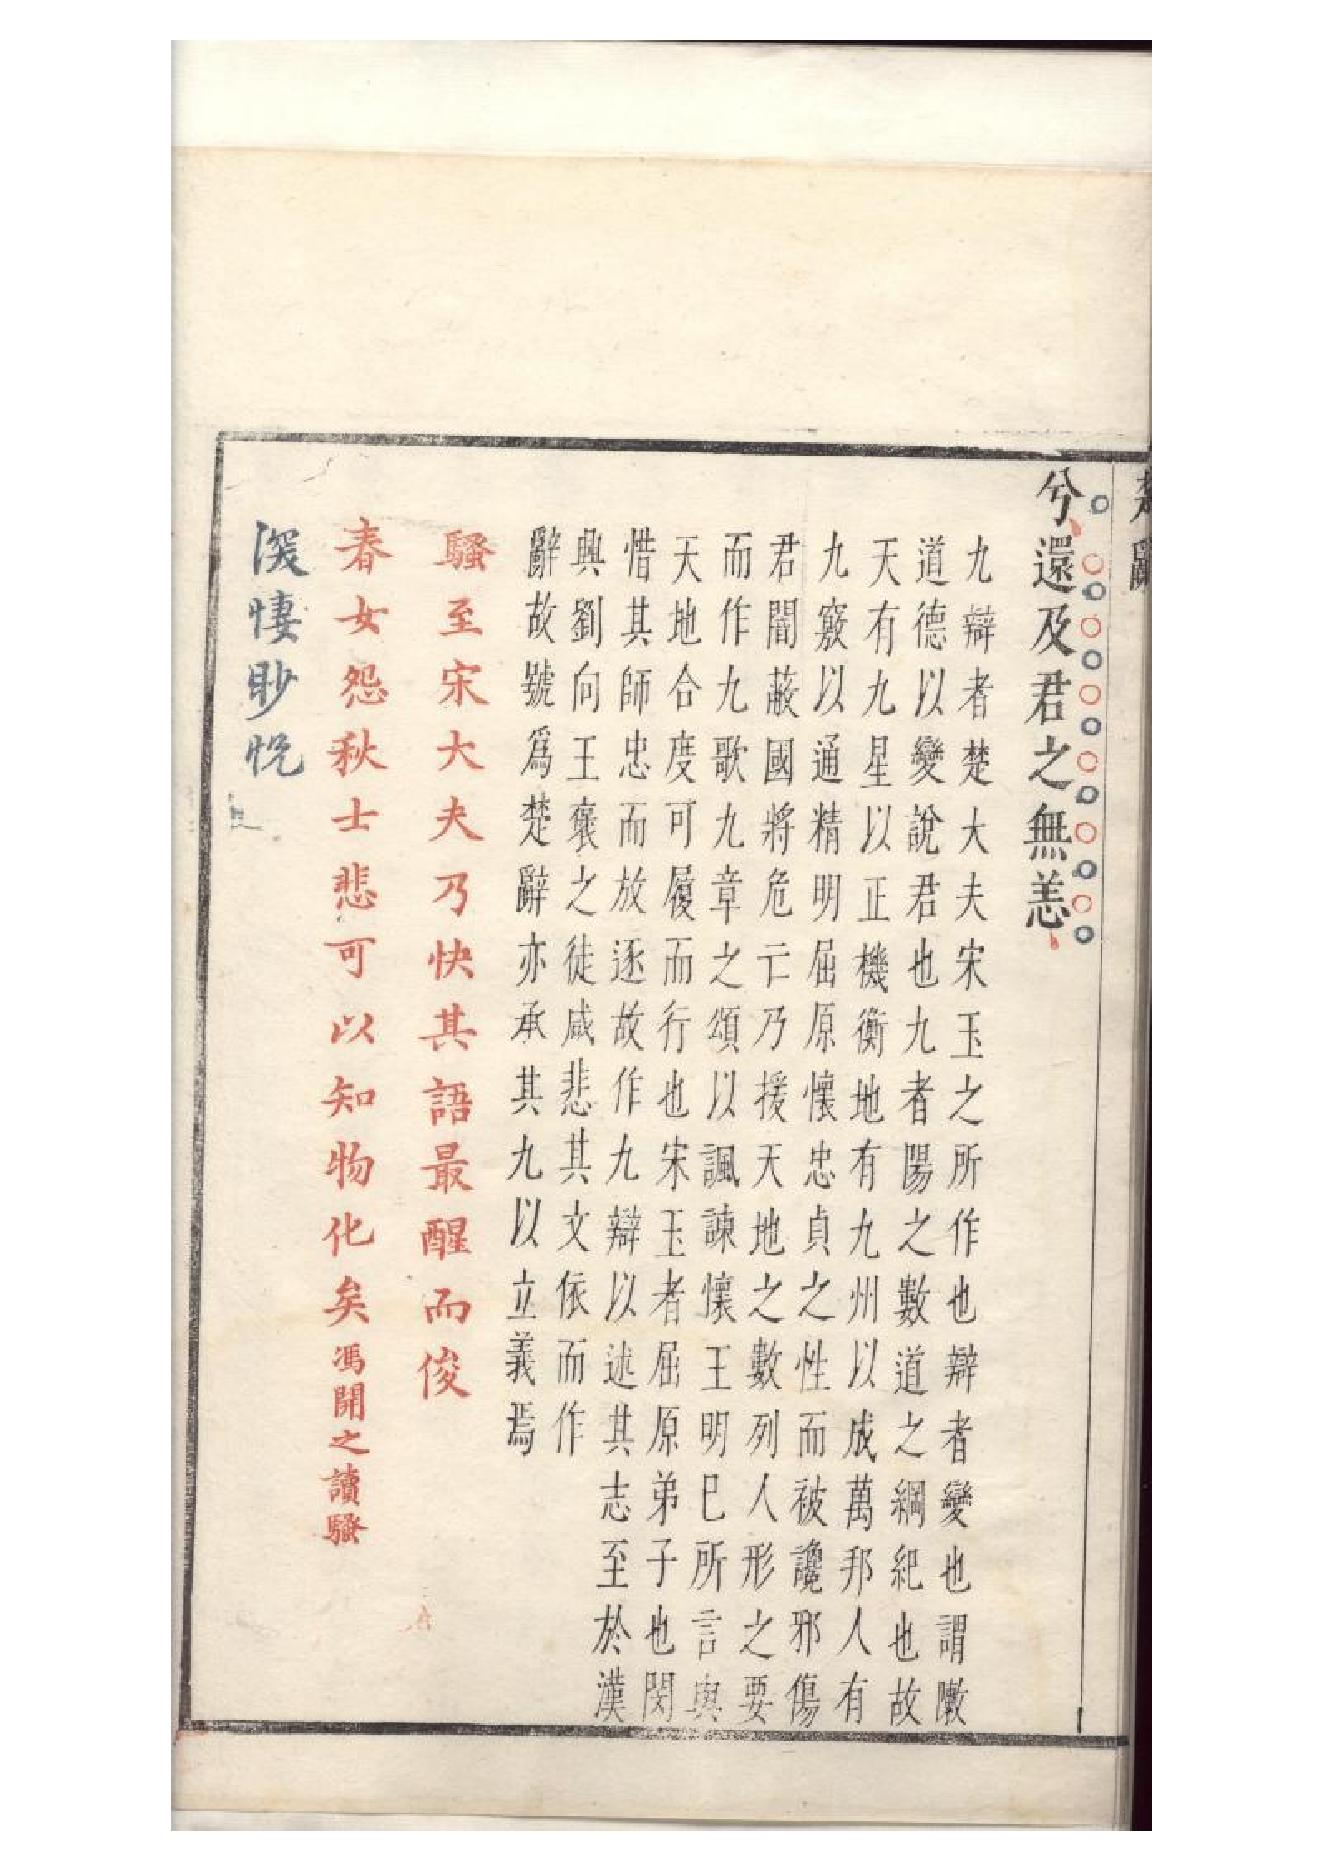 楚辭
兮還及君之無恙
九辯者楚大夫宋玉之所作也辯者變也謂敶
道德以變說君也九者陽之數道之綱紀也故
天有九星以正機衡地有九州以成萬邦人有
九竅以通精明屈原懷忠貞之性而被讒邪傷
君闇蔽國將危亡乃援天地之數列人形之要
而作九歌九章之頌以諷諫懷王明已所言與
天地合度可履而行也宋玉者屈原弟子也閔
惜其師忠而放逐故作九辯以述其志至於漢
興劉向王襃之徒咸悲其文依而作
辭故號爲楚辭亦承其九以立義焉
騷至宋大夫乃快其語最醒而俊
春女怨秋士悲可以知物化矣馮開之讀騷
深悽眇怳